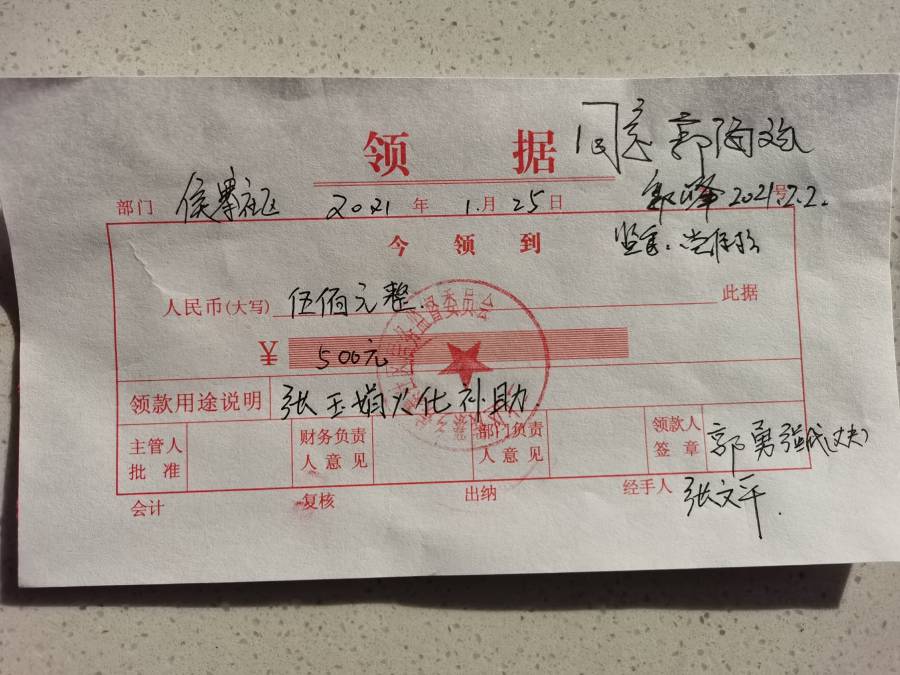 领 据
同意
部门 侯寨社区 2021 年 1 月 25 日 号
2021.2.2.
今领到
监委:
人民币(大写) 伍佰元整. 此据
¥ 500元
领款用途说明 张玉娟火化补助.
主管人批准 财务负责人意见 部门负责人意见 领款人签章 郭勇强代(丈夫)
会计 复核 出纳 经手人 张文平.
监督委员会